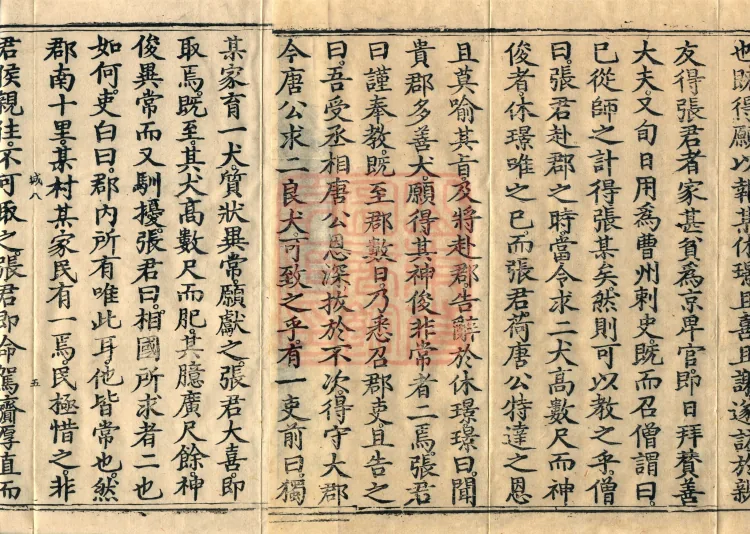 也既得願以報某休璟且喜且謝遂訪於親
友得張君者家甚貧爲京卑官即日拜贊善
大夫又旬日用爲曹州刺史既而召僧謂曰
已從師之計得張某矣然則可以教之乎僧
曰張君赴郡之時當令求二犬高數尺而神
俊者休璟唯之已而張君荷唐公特達之恩
且莫喻其旨及將赴郡告辭於休璟璟曰聞
貴郡多善犬願得其神俊非常者二焉張君
曰謹奉教既至郡數日乃悉召郡吏且告之
曰吾受丞相唐公恩深拔於不次得守大郡
今唐公求二良犬可致之乎有一吏前曰獨
某家育一犬質狀異常願獻之張君大喜即
取焉既至其犬髙數尺而肥其臆廣尺餘神
俊異常而又馴擾張君曰相國所求者二也
如何吏白曰郡内所有唯此耳他皆常也然
郡南十里某村某家民有一焉民極惜之非
城八
五
君侯親往不可取之張君即命駕齎厚直而